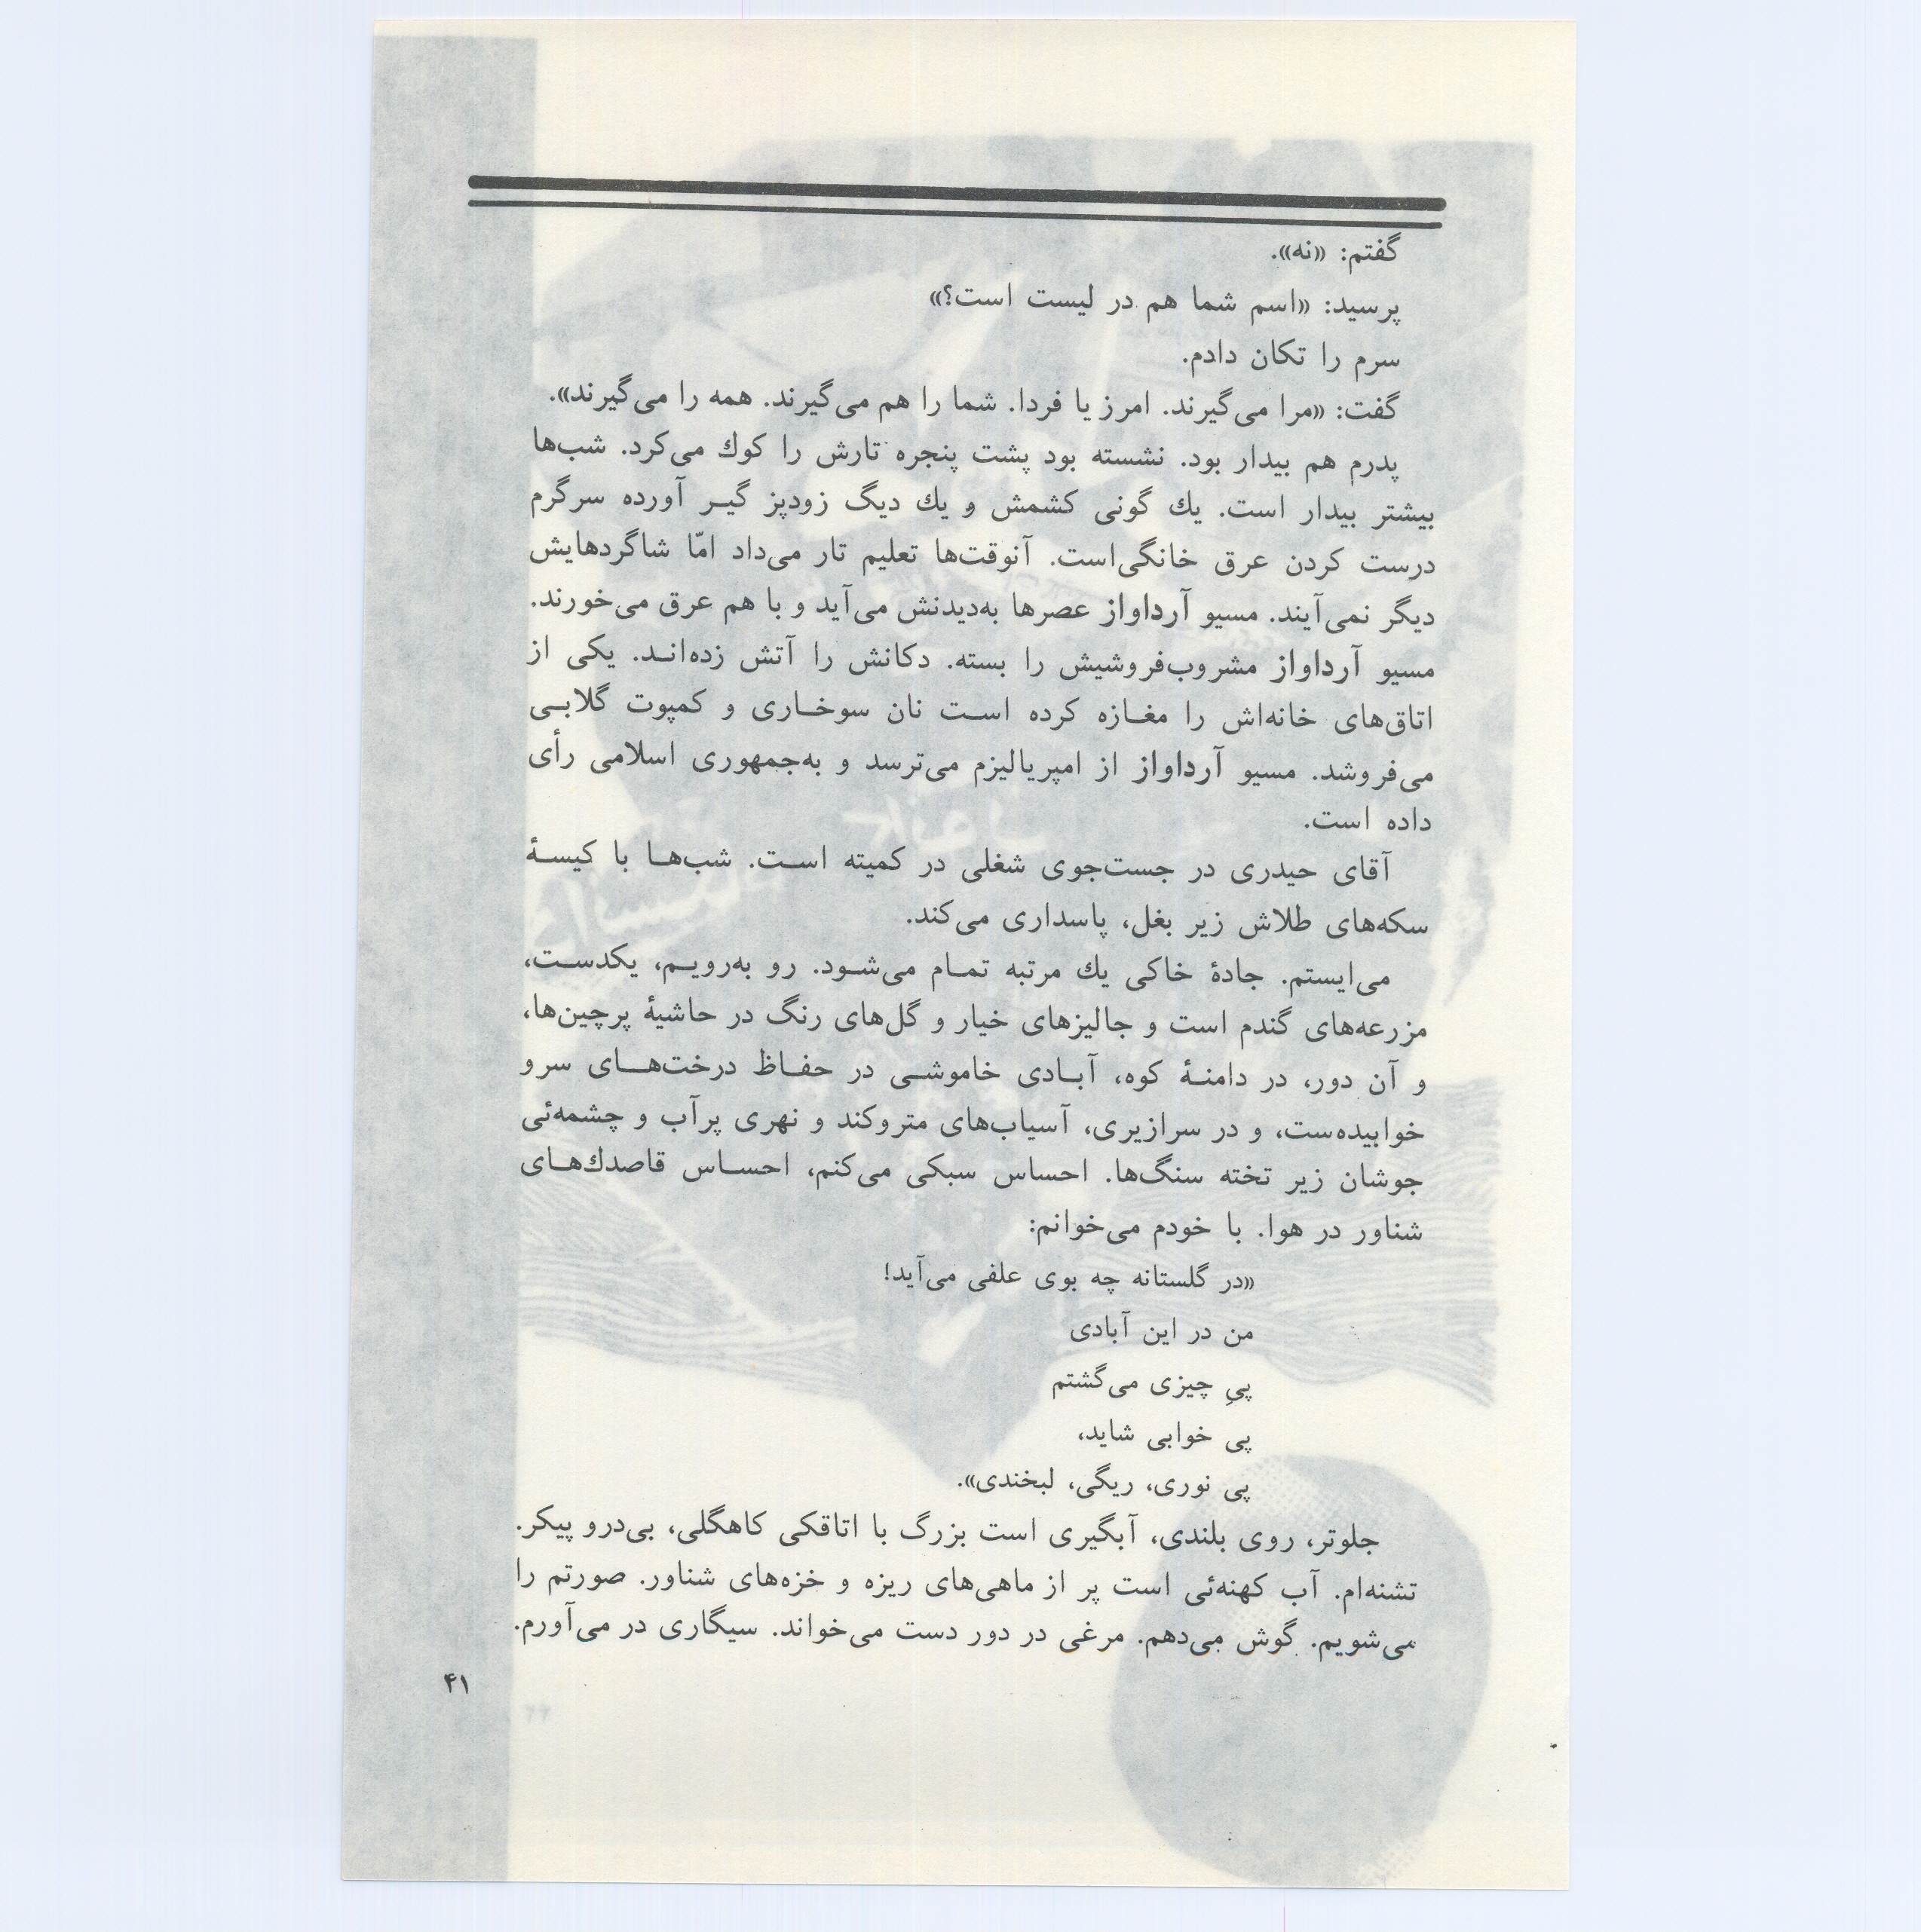 گفتم: «نه».
پرسید: «اسم شما هم در لیست است؟»
سرم را تکان دادم.
گفت: «مرا می‌گیرند. امرز یا فردا. شما را هم می‌گیرند. همه را می‌گیرند».
پدرم هم بیدار بود. نشسته بود پشت پنجره تارش را کوك می‌کرد. شب‌ها
بیشتر بیدار است. یك گونی کشمش و یك دیگ زودپز گیـر آورده سرگرم
درست کردن عرق خانگی‌است. آنوقت‌ها تعلیم تار می‌داد امّا شاگردهایش
دیگر نمی‌آیند. مسیو آرداواز عصرها به‌دیدنش می‌آید و با هم عرق می‌خورند.
مسیو آرداواز مشروب‌فروشیش را بسته. دکانش را آتش زده‌انـد. یکی از
اتاق‌های خانه‌اش را مغـازه کرده اسـت نان سوخـاری و کمپوت گلابـی
می‌فروشد. مسیو آرداواز از امپریالیزم می‌ترسد و به‌جمهوری اسلامی رأی
داده است.
آقای حیدری در جست‌جوی شغلی در کمیته اسـت. شب‌هـا با کیسـۀ
سکه‌های طلاش زیر بغل، پاسداری می‌کند.
می‌ایستم. جادۀ خاکی یك مرتبه تمـام می‌شـود. رو به‌رویـم، یکدسـت،
مزرعه‌های گندم است و جالیزهای خیار و گل‌های رنگ در حاشیۀ پرچین‌ها،
و آن دور، در دامنـۀ کوه، آبـادی خاموشـی در حفـاظ درخت‌هـای سرو
خوابیده‌ست، و در سرازیری، آسیاب‌های متروکند و نهری پرآب و چشمه‌ئی
جوشان زیر تخته سنگ‌ها. احساس سبکی می‌کنم، احسـاس قاصدك‌هـای
شناور در هوا. با خودم می‌خوانم:
«در گلستانه چه بوی علفی می‌آید!
من در این آبادی
پیِ چیزی می‌گشتم
پی خوابی شاید،
پی نوری، ریگی، لبخندی».
جلوتر، روی بلندی، آبگیری است بزرگ با اتاقکی کاهگلی، بی‌درو پیکر.
تشنه‌ام. آب کهنه‌ئی است پر از ماهی‌های ریزه و خزه‌های شناور. صورتم را
می‌شویم. گوش می‌دهم. مرغی در دور دست می‌خواند. سیگاری در می‌آورم.
۴۱